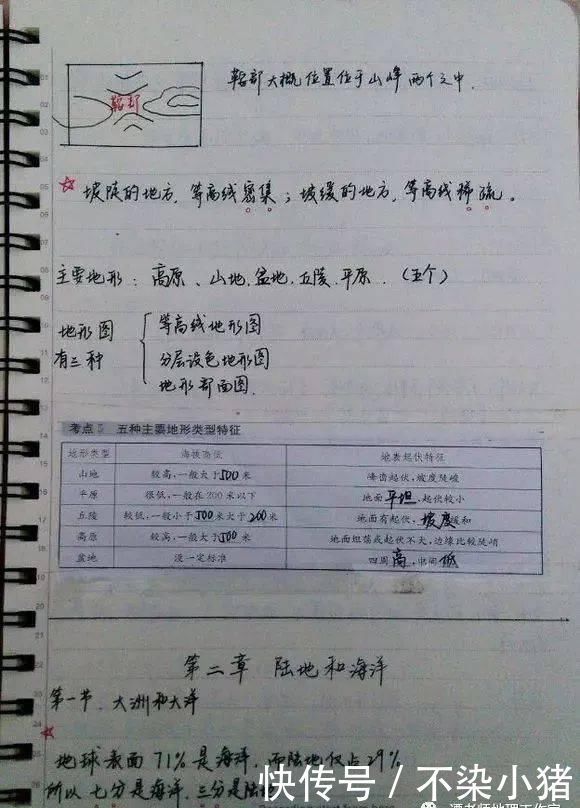 鞍部
鞍部大概位置位于山峰两个之中.
☆ 坡陡的地方,等高线密集;坡缓的地方,等高线稀疏。
主要地形:高原、山地,盆地,丘陵,平原.(五个)
地形图有三种
等高线地形图
分层设色地形图
地形部面图.
考点5 五种主要地形类型特征
地形类型 海拔高低 地表起伏特征
山地 较高,一般大于500米 峰峦起伏,坡度陡峻
平原 很低,一般在200米以下 地面平坦,起伏较小
丘陵 较低,一般小于500米大于200米 地面有起伏,坡度缓和
高原 较高,一般大于500米 地面坦荡或起伏不大,边缘比较陡峭
盆地 没一定标准 四周高,中间低
第二章 陆地和海洋
第一节、大洲和大洋
☆
地球表面71%是海洋,而陆地仅占29%
所以七分是海洋,三分是陆地
快传号/不染小猪